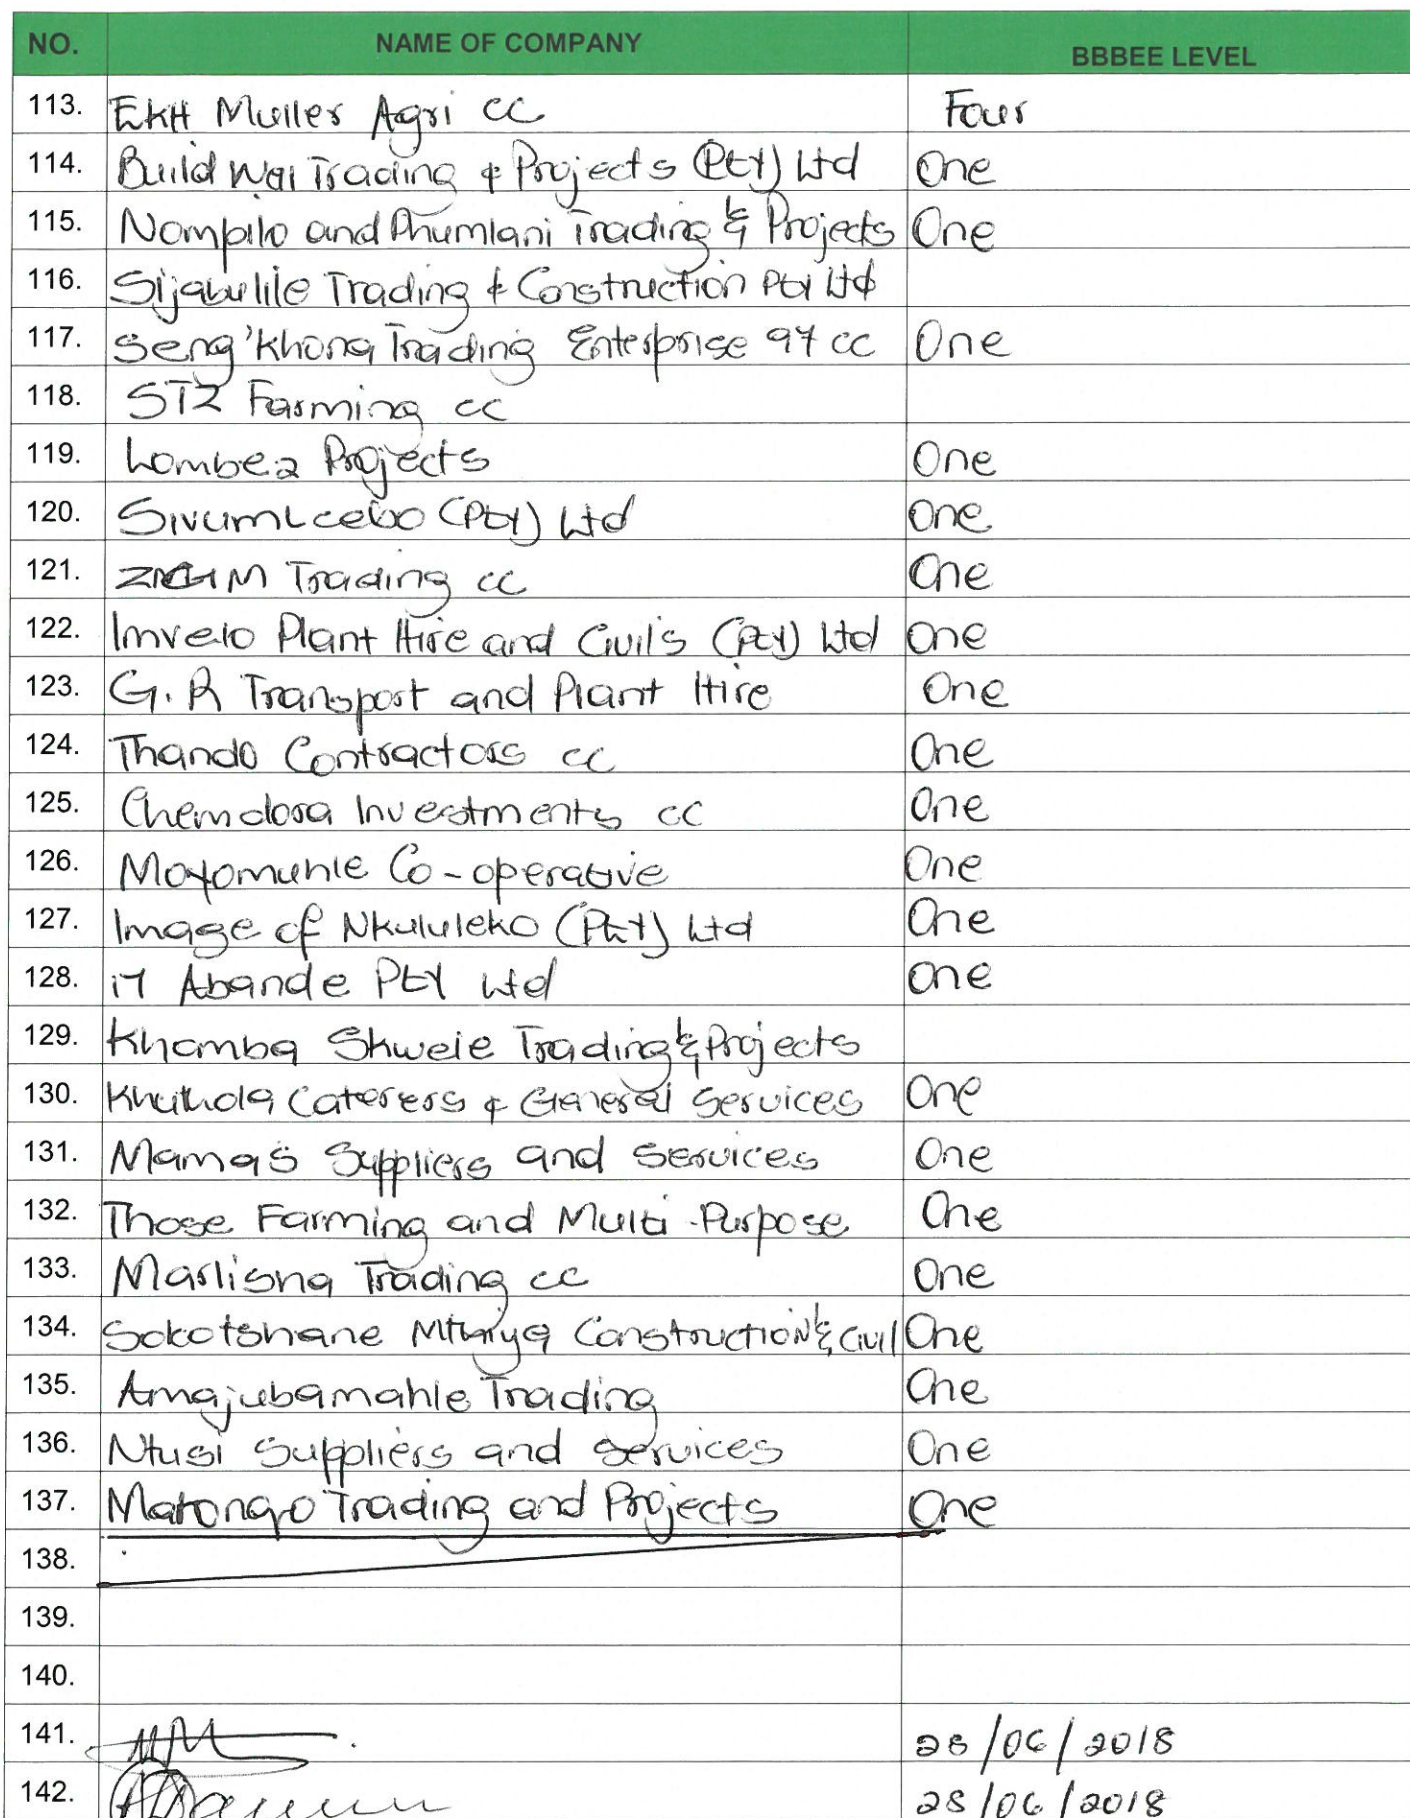 NO. NAME OF COMPANY BBBEE LEVEL
113. EKH Muller Agri cc Four
114. Build Wai Trading & Projects (Pty) Ltd One
115. Nompilo and Phumlani Trading & Projects One
116. Sijabulile Trading & Construction Pty Ltd
117. Seng'khona Trading Enterprise 97 cc One
118. STZ Farming cc
119. Lombea Projects One
120. Sivumicebo (Pty) Ltd One
121. Trading cc One
122. Imvelo Plant Hire and Civil's (Pty) Ltd One
123. G.R Transport and Plant Hire One
124. Thando Contractors cc One
125. Chemdora Investments cc One
126. Moyomuhle Co-operative One
127. Image of Nkululeko (Pty) Ltd One
128. i7 Abande Pty Ltd One
129. Khamba Skweie Trading & Projects
130. Khuthola Caterers & General Services One
131. Mama's Suppliers and Services One
132. Those Farming and Multi-Purpose One
133. Marlisha Trading cc One
134. Sokotshane Mthiya Construction & Civil One
135. Amajubamahle Trading One
136. Ntusi Suppliers and Services One
137. Matongo Trading and Projects One
138.
139.
140.
141. 28/06/2018
142. 28/06/2018